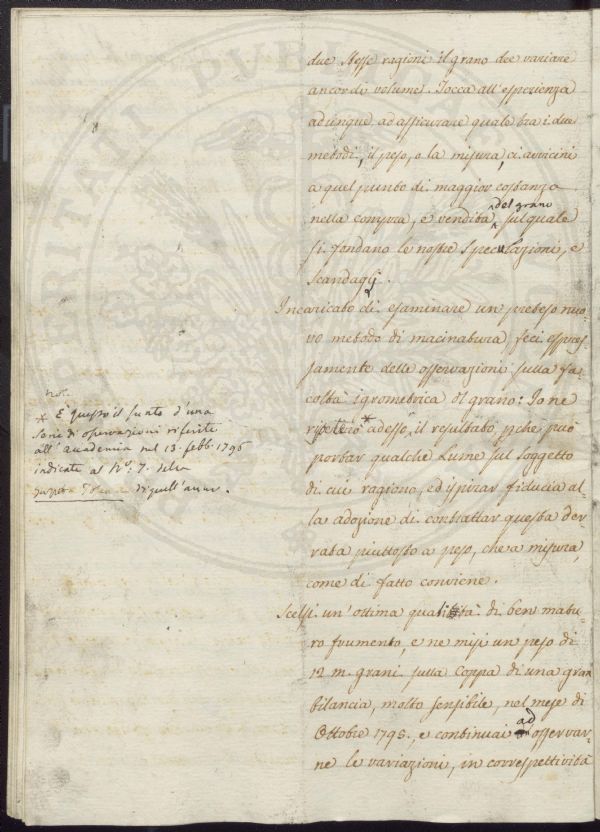 due stesse ragioni il grano dee variare
ancor di volume. Tocca all'esperienza
adunque ad assicurare quale tra i due
metodi, il peso, o la misura, ci avvicini
a quel punto di maggior costanza
nella compra, e vendita del grano, sul quale
si fondano le nostre speculazioni, e
scandagij.
Incaricato di esaminare un preteso nuo-
vo metodo di macinatura, feci espres-
samente delle osservazioni sulla fa-
coltà igrometrica del grano: Io ne
ripeterò * adesso, il resultato, pche può
portar qualche lume sul soggetto
di cui ragiono, ed ispirar fiducia al-
la adozione di contrattar questa der-
rata piuttosto a peso, che a misura,
come di fatto conviene.
Scelsi un'ottima qualità di ben matu-
ro frumento, e ne misi un peso di
12 m. grani sulla coppa di una gran
bilancia, molto sensibile, nel mese di
Ottobre 1795., e continuai ad osservar-
ne le variazioni, in correspettività
not.
* È questo il sunto d'una
serie di osservazioni riferite
all'accademia nel 13. febb. 1796
indicate al N.º 7. della
di quell'anno.